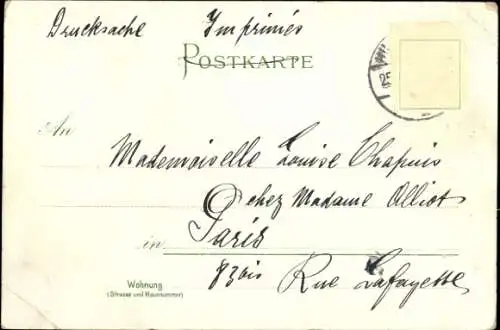 Drucksache Imprimés
POSTKARTE
25
An
Mademoiselle Louise Chapuis
chez Madame Olliot
in Paris
83bis Rue Lafayette
Wohnung
(Strasse und Hausnummer)